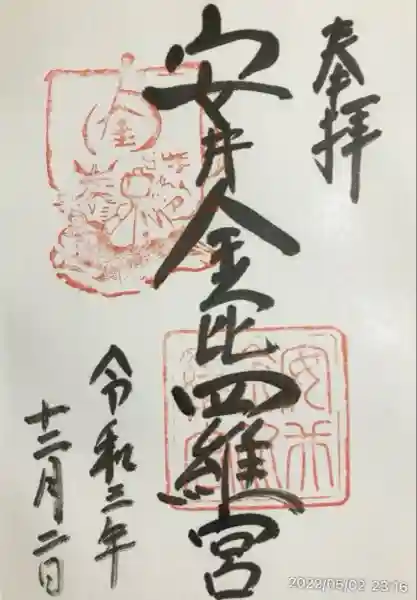 奉拝
安井金比羅宮
令和三年
十二月二日
金
2022/05/02 23:16